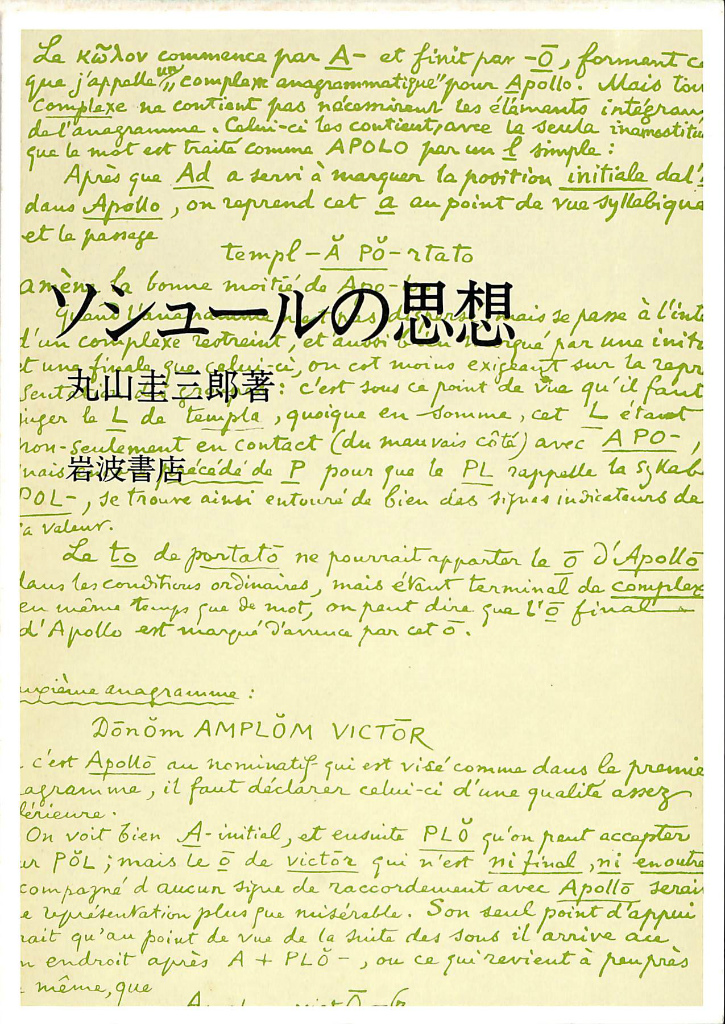 Le κῶλον commence par A- et finit par -Ō, forment c
que j'appelle un „complexe anagrammatique" pour Apollo. Mais tou
complexe ne contient pas nécessairem les éléments intégran
de l'anagramme. Celui-ci les contient, avec la seule
que le mot est traité comme APOLO par un l simple :
Après que Ad a servi à marquer la position initiale de l'
dans Apollo, on reprend cet a au point de vue syllabique
et le passage
templ-Ă PŎ-rtato
amène la bonne moitié de Apo-
ソシュールの思想
Quand l'anagramme n'est pas dispersé, mais se passe à l'int
d'un complexe restreint, et aussi bien marqué par une initi
et une finale que celui-ci, on est moins exigeant sur la repr
丸山圭三郎著
: c'est sous ce point de vue qu'il faut
juger le L de templa, quoique en somme, cet L étant
non-seulement en contact (du mauvais côté) avec APO-,
岩波書店
mais précédé de P pour que le PL rappelle la syllab
POL-, se trouve ainsi entouré de bien des signes indicateurs de
a valeur.
Le to de portatō ne pourrait apporter le ō d'Apollō
dans les conditions ordinaires, mais étant terminal de complexe
en même temps que de mot, on peut dire que l'ō final
d'Apollo est marqué d'avance par cet ō.
uxième anagramme :
Dōnŏm AMPLŎM VICTŌR
c'est Apollō au nominatif qui est visé comme dans le premie
agramme, il faut déclarer celui-ci d'une qualité assez
érieure.
On voit bien A-initial, et ensuite PLŎ qu'on peut accepter
ur PŎL ; mais le ō de victōr qui n'est ni final, ni en outre
compagné d'aucun signe de raccordement avec Apollō serai
e représentation plus que misérable. Son seul point d'appui
rait qu'au point de vue de la suite des sons il arrive
n endroit après A + PLŎ-, ou ce qui revient à peu près
même, que